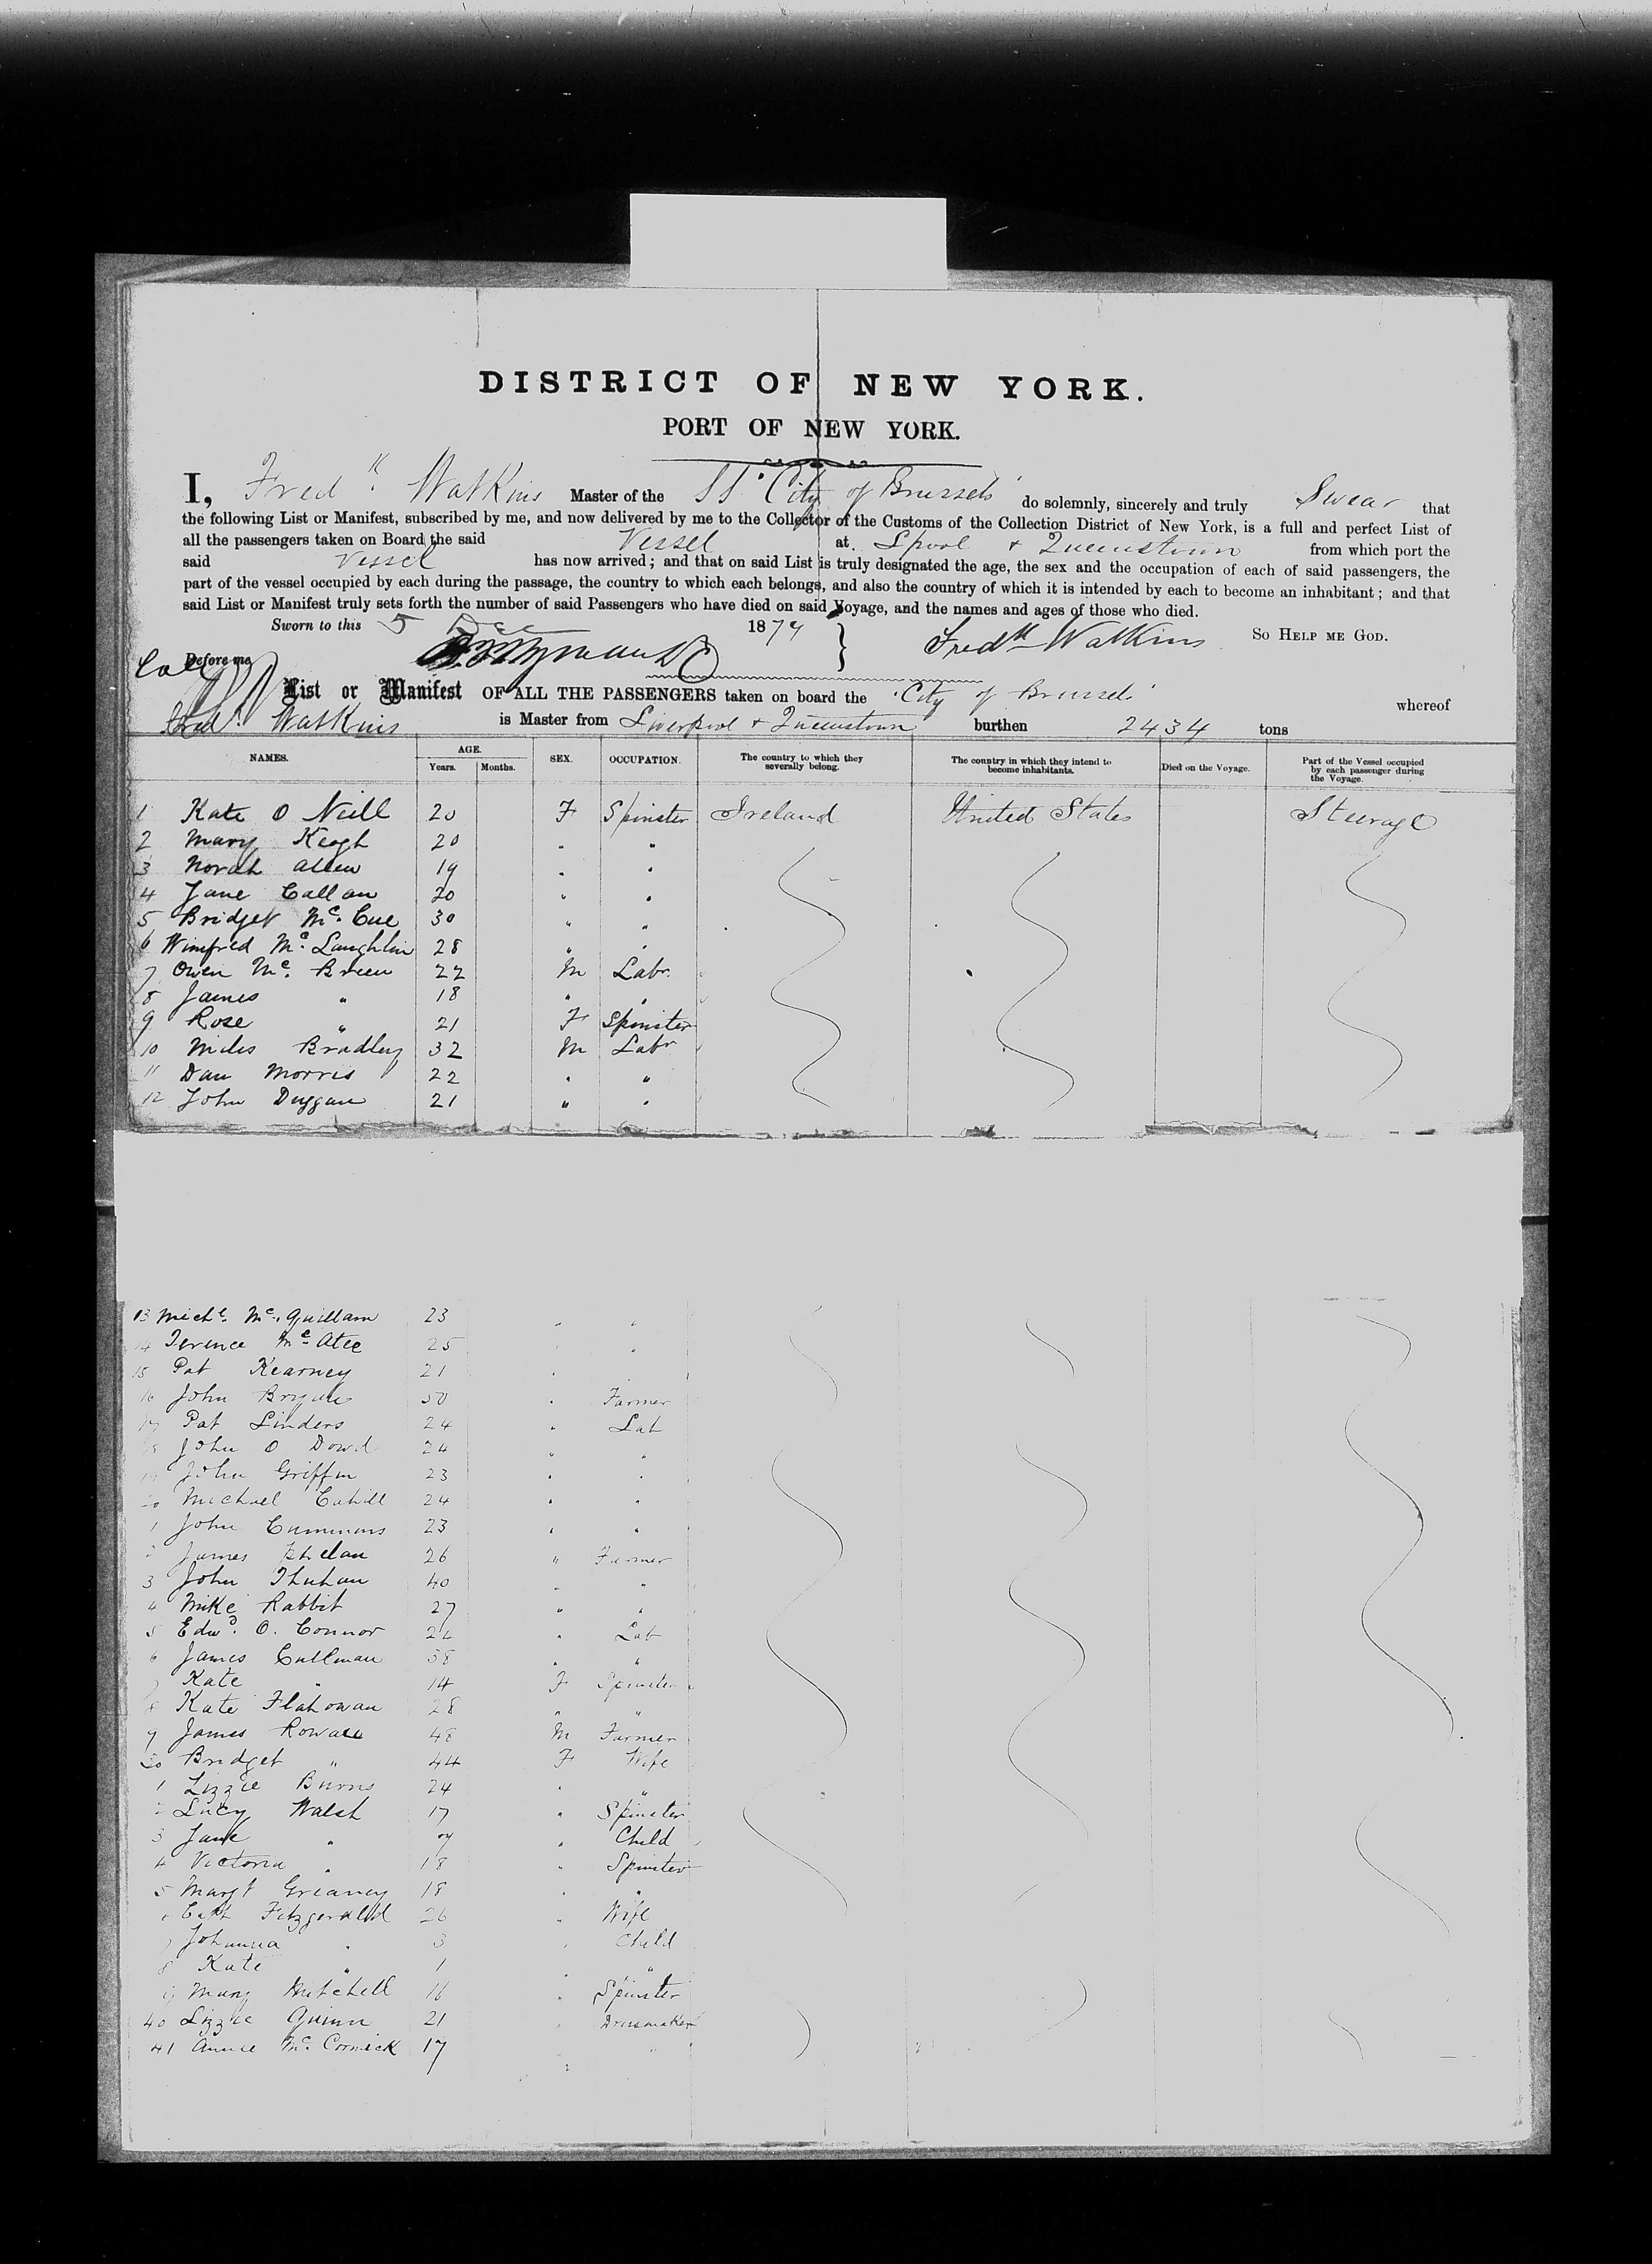 DISTRICT OF NEW YORK.
PORT OF NEW YORK.
I, Fredk. Watkins Master of the SS "City of Brussels" do solemnly, sincerely and truly Swear that
the following List or Manifest, subscribed by me, and now delivered by me to the Collector of the Customs of the Collection District of New York, is a full and perfect List of
all the passengers taken on Board the said Vessel at Lpool & Queenstown from which port the
said Vessel has now arrived; and that on said List is truly designated the age, the sex and the occupation of each of said passengers, the
part of the vessel occupied by each during the passage, the country to which each belongs, and also the country of which it is intended by each to become an inhabitant; and that
said List or Manifest truly sets forth the number of said Passengers who have died on said Voyage, and the names and ages of those who died.
Sworn to this 5 Dec 1874 Fredk Watkins So Help me God.
Before me
List or Manifest OF ALL THE PASSENGERS taken on board the "City of Brussels" whereof
Fredk. Watkins is Master from Liverpool & Queenstown burthen 2434 tons
NAMES. AGE. Years. Months. SEX. OCCUPATION. The country to which they severally belong. The country in which they intend to become inhabitants. Died on the Voyage. Part of the Vessel occupied by each passenger during the Voyage.
1 Kate O Neill 20 F Spinster Ireland United States Steerage
2 Mary Keogh 20 " "
3 Norah Allen 19 " "
4 Jane Callan 20 " "
5 Bridget Mc. Cue 30 " "
6 Winifred Mc. Laughlin 28 " "
7 Owen Mc. Breen 22 M Labr.
8 James " 18 " "
9 Rose " 21 F Spinster
10 Miles Bradley 32 M Labr
11 Dan Morris 22 " "
12 John Duggan 21 " "
13 Michl. Mc. Quillam 23 " "
14 Terence Mc Atee 25 " "
15 Pat Kearney 21 "
16 John Bryans 50 " Farmer
17 Pat Linders 24 " Lab
18 John O Dowd 24 " "
19 John Griffin 23 " "
20 Michael Cahill 24 " "
1 John Cummins 23 " "
2 James Phelan 26 " Farmer
3 John 40 " "
4 Mike Rabbit 27 " "
5 Edwd. O. Connor 24 " Lab
6 James Cullman 38 " "
7 Kate " 14 F Spinster
8 Kate Flahowan 28 " "
9 James Rowan 48 M Farmer
30 Bridget " 44 F Wife
1 Lizzie Burns 24 " "
2 Lucy Walsh 17 " Spinster
3 Jane " " Child
4 Victoria " 18 " Spinster
5 Margt Greaney 18 " "
6 Cath Fitzgerald 26 " Wife
7 Johanna " 3 " Child
8 Kate " 1 " "
9 Mary Mitchell 16 " Spinster
40 Lizzie Quinn 21 " Dressmaker
41 Annie Mc. Cormick 17 " "